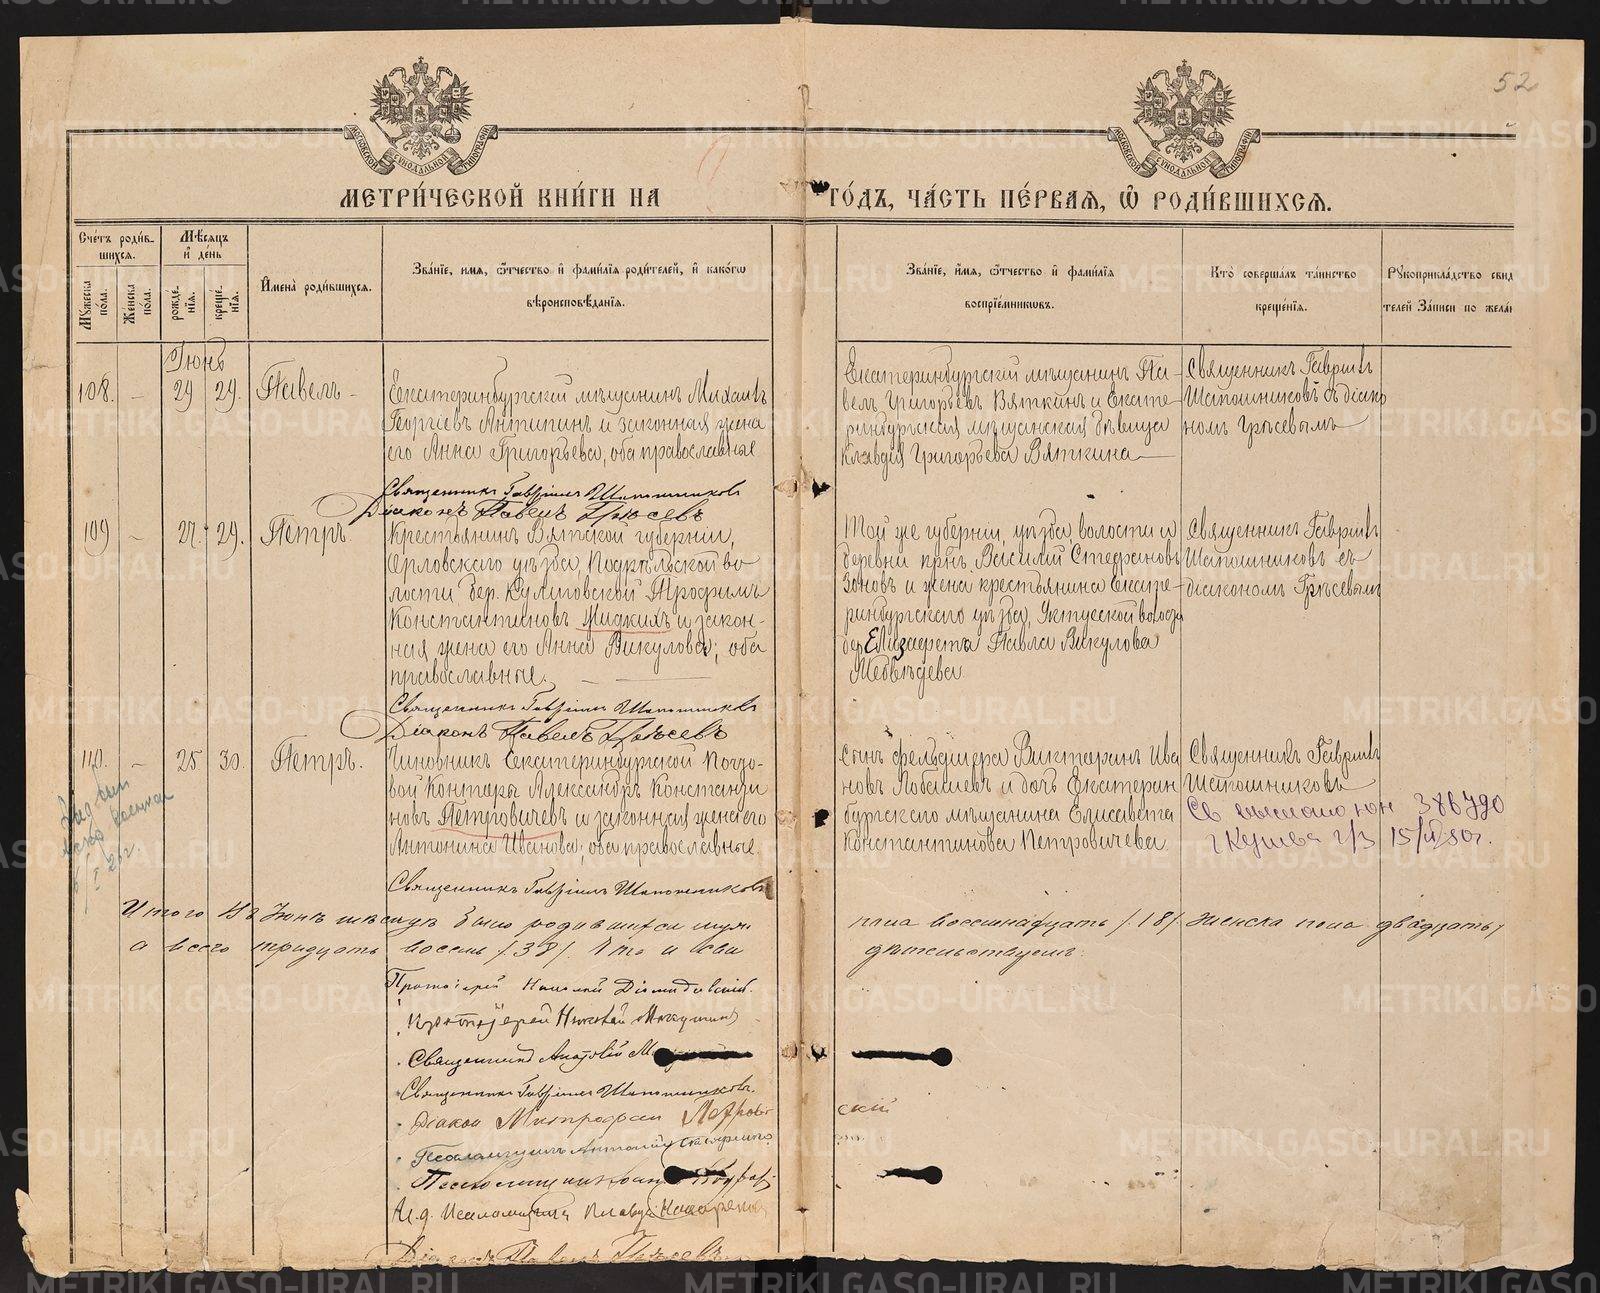 52
МОСКОВСКОЙ СѴНОДАЛЬНОЙ ТИПОГРАФІИ
МОСКОВСКОЙ СѴНОДАЛЬНОЙ ТИПОГРАФІИ
МЕТРИ́ЧЕСКОЙ КНИ́ГИ НА ГО́ДЪ, ЧА́СТЬ ПЕ́РВАЯ, Ѡ РОДИ́ВШИХСЯ.
Сче́тъ роди́в-
шихся.
Мѣ́сяцъ
и҆ де́нь
Му́жеска
по́ла.
Же́нска
по́ла.
рожде́-
нїя.
креще́-
нїя.
И҆мена̀ роди́вшихся.
Зва́нїе, и҆мя, ѻ҆́тчество и҆ фами́лїя роди́телей, и҆ како́гѡ
вѣроисповѣ́данїя.
Зва́нїе, и҆́мя, ѻ҆́тчество и҆ фами́лїя
воспрїе́мникѡвъ.
Кто̀ соверша́лъ та́инство
креще́нїя.
Рꙋкоприкла́дство свид
телей За́писи по жела́н
Іюнь
108. - 29 29. Павелъ -
Екатеринбургскій мѣщанинъ Михаилъ
Георгіевъ Антипинъ и законная жена
его Анна Григорьева, оба православные
Екатеринбургскій мѣщанинъ Па-
велъ Григорьевъ Вяткинъ и Екате-
ринбургская мѣщанская дѣвица
Клавдія Григорьева Вяткина
Священникъ Гавріилъ
Шапошниковъ съ діако
номъ Грѣсевымъ
Священникъ Гавріилъ Шапошниковъ
Діаконъ Павелъ Грѣсевъ
109 - 27. 29. Петръ.
Крестьянинъ Вятской губерніи,
Орловскаго уѣзда, Подрѣльской во
лости, дер. Кулиговской Трофимъ
Константиновъ Жидкихъ и закон-
ная жена его Анна Викулова; оба
православные.
Той же губерніи, уѣзда, волости и
деревни крнъ Василій Стефановъ
Зоновъ и жена крестьянина Екате-
ринбургскаго уѣзда, Уктусской волости
дер Елизавета Павла Викулова
Медвѣдева
Священникъ Гавріилъ
Шапошниковъ съ
діакономъ Грѣсевымъ
Священникъ Гавріилъ Шапошниковъ
Діаконъ Павелъ Грѣсевъ
110. - 25 30. Петръ.
Чиновникъ Екатеринбургской Почто-
вой Конторы Александръ Константи
новъ Петровичевъ и законная жена его
Антонина Иванова; оба православные.
Сынъ фельдшера Викторинъ Ива
новъ Лобышевъ и дочь Екатерин
бургскаго мѣщанина Елисавета
Константинова Петровичева
Священникъ Гавріилъ
Шапошниковъ
Св выслано юн 386790
15/80г.
Священникъ Гавріилъ Шапошниковъ
Итого въ Іюнѣ мѣсяцѣ было родившихся муж. пола восемнадцать /18/ женска пола двадцать,
а всего тридцать восемь /38/. Что и сви дѣтельствуемъ:
Протоіерей Николай Діомидовскій.
Протоіерей Николай
Священникъ Анатолій
Священникъ Гавріилъ Шапошниковъ.
Діаконъ Митрофанъ
скій
Псаломщикъ Антоній
Псаломщикъ
И.д. Псаломщика
Діаконъ Павелъ Грѣсевъ
METRIKI.GASO-URAL.RU